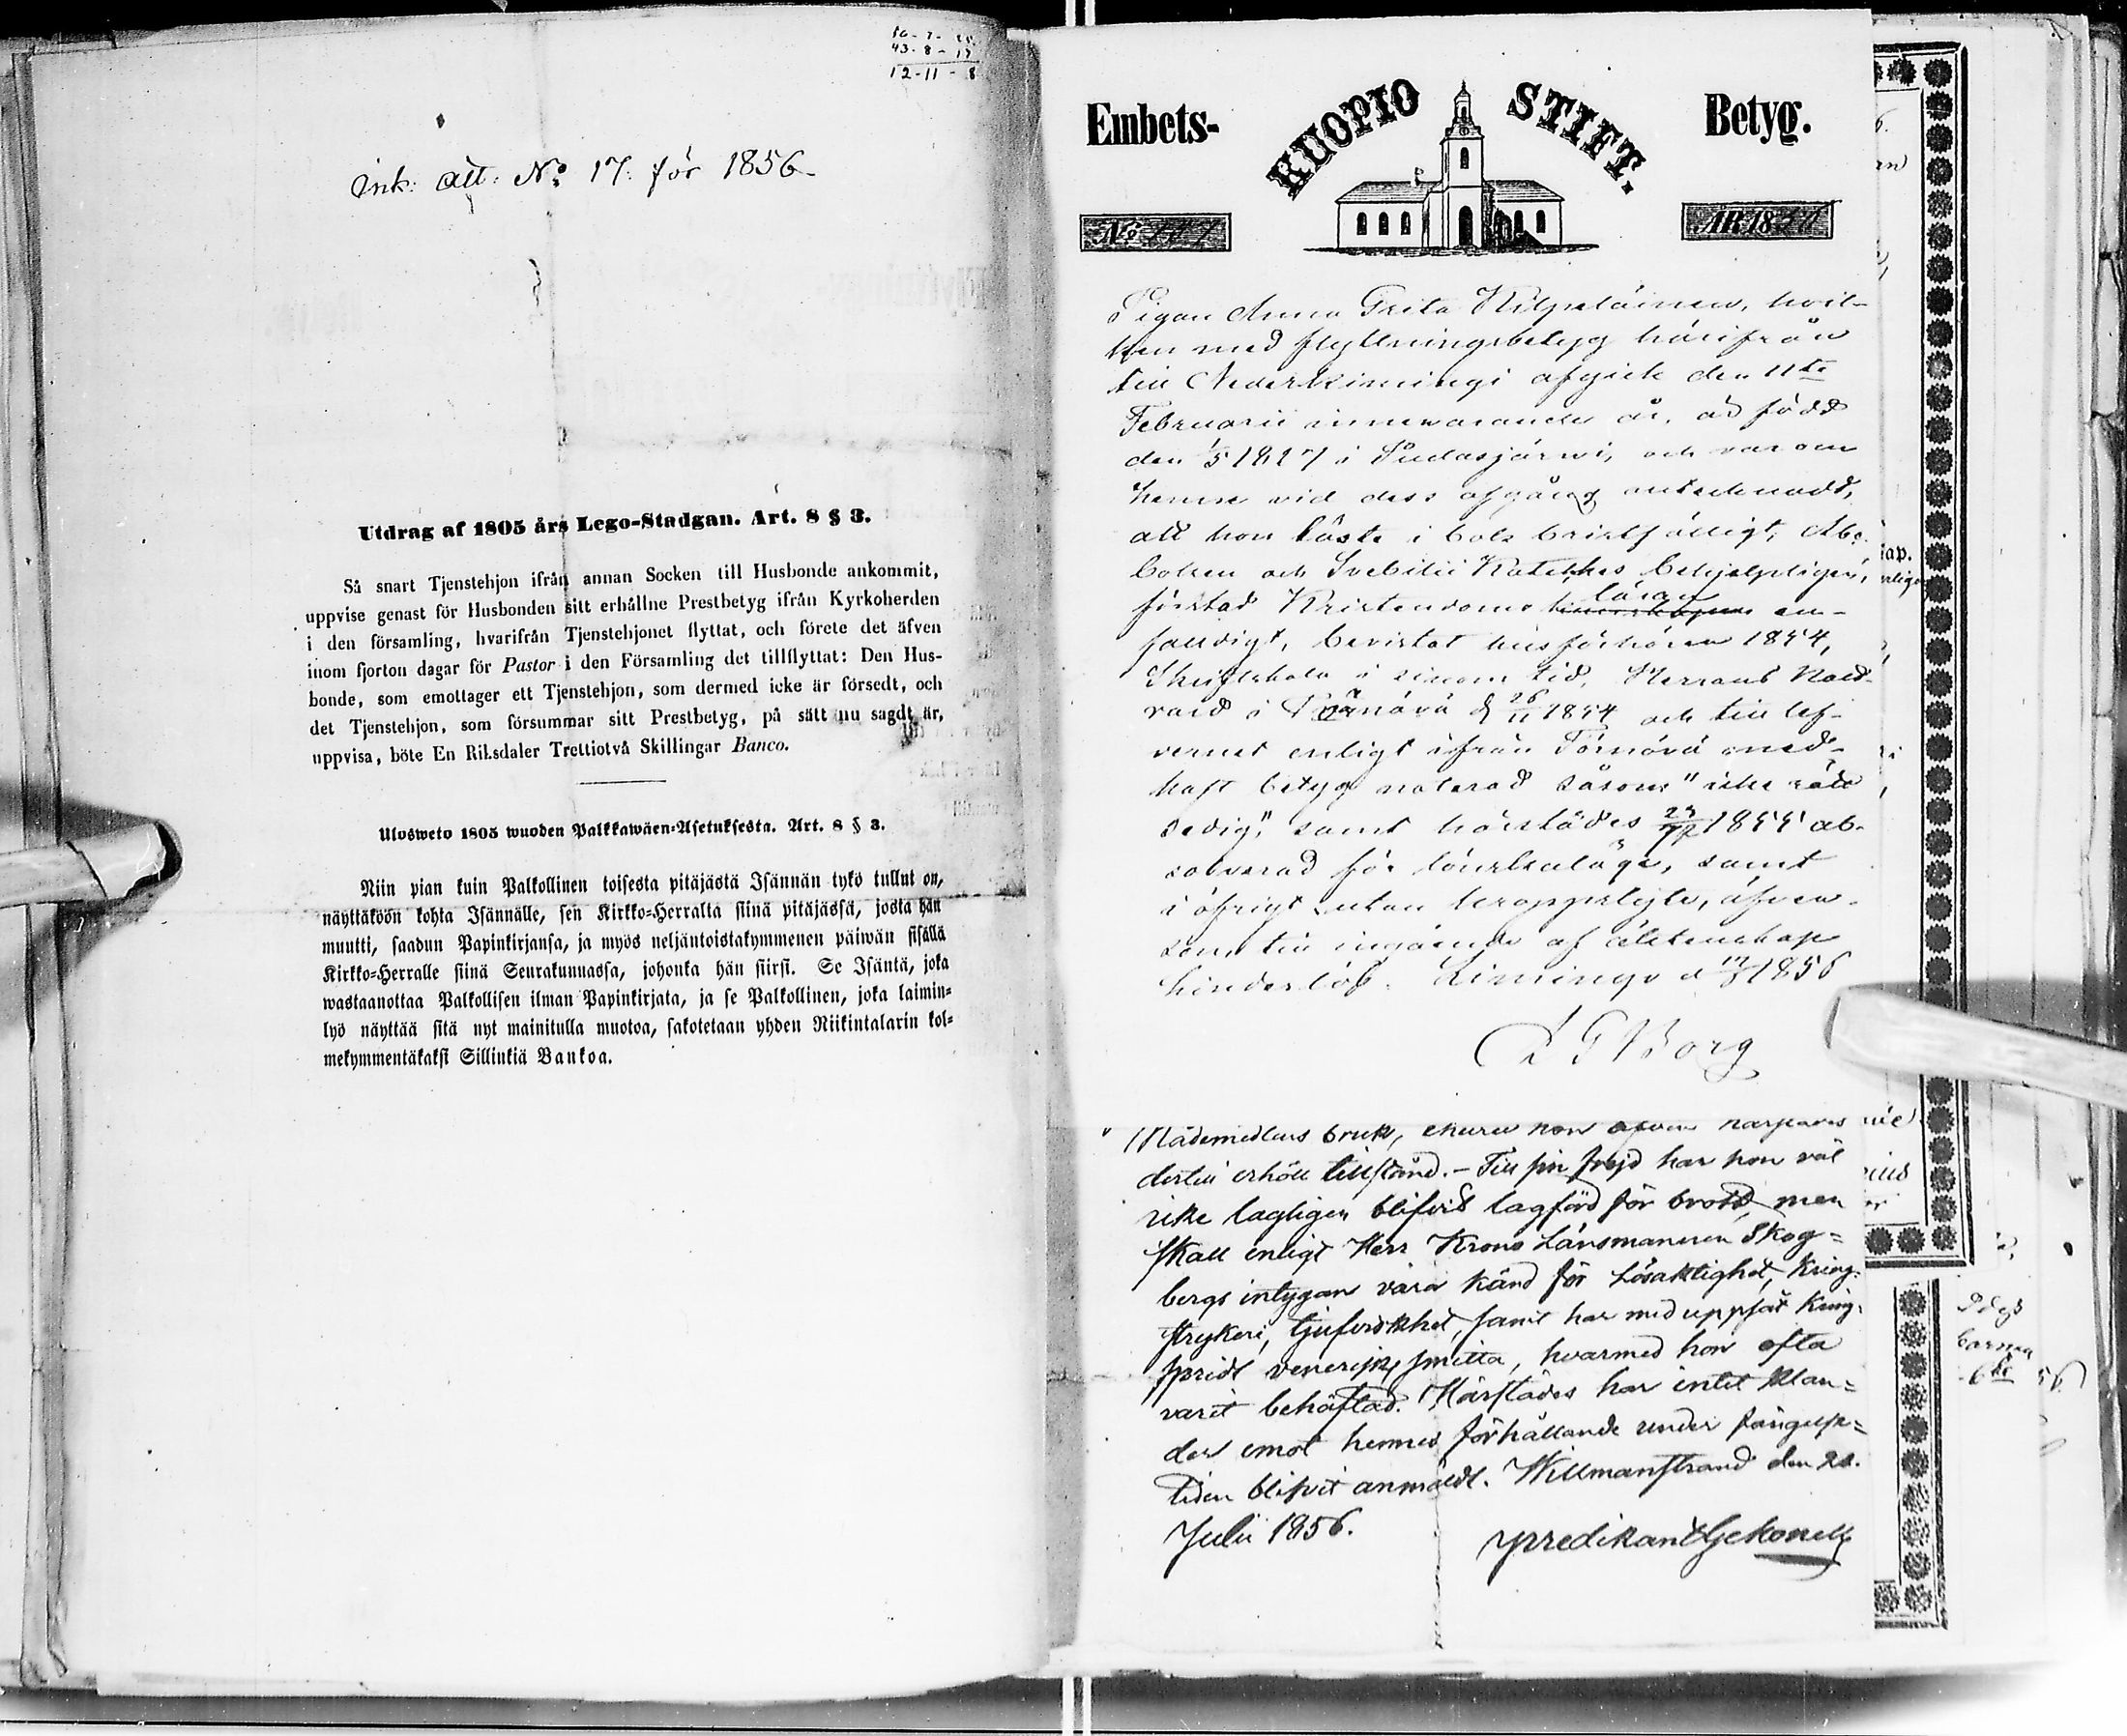 56-7-
43-8-17
12-11-8
Ink: att: No 17. för 1856.
Utdrag af 1805 års Lego-Stadgan. Art. 8 § 3.
Så snart Tjenstehjon ifrån annan Socken till Husbonde ankommit,
uppvise genast för Husbonden sitt erhållne Prestbetyg ifrån Kyrkoherden
i den församling, hvarifrån Tjenstehjonet flyttat, och förete det äfven
inom fjorton dagar för Pastor i den Församling det tillflyttat: Den Hus-
bonde, som emottager ett Tjenstehjon, som dermed icke är försedt, och
det Tjenstehjon, som försummar sitt Prestbetyg, på sätt nu sagdt är,
uppvisa, böte En Riksdaler Trettiotvå Skillingar Banco.
Ulosweto 1805 wuoden Palkkawäen-Asetuksesta. Art. 8 § 3.
Niin pian kuin Palkollinen toisesta pitäjästä Isännän tykö tullut on,
näyttäköön kohta Isännälle, sen Kirkko-Herralta siinä pitäjässä, josta hän
muutti, saadun Papinkirjansa, ja myös neljäntoistakymmenen päiwän sisällä
Kirkko-Herralle siinä Seurakunnassa, johonka hän siirsi. Se Isäntä, joka
wastaanottaa Palkollisen ilman Papinkirjata, ja se Palkollinen, joka laimin-
lyö näyttää sitä nyt mainitulla muotoa, sakotetaan yhden Riikintalarin kol-
mekymmentäkaksi Sillinkiä Bankoa.
Embets- KUOPIO STIFT. Betyg.
No ÅR 18
Pigan Anna Greta Kilpeläinen, hvil-
ken med flyttningsbetyg härifrån
till Nederkiminge afgick den 11te
Februarii innevarande år, är född
den 1/5 1827 i Pudasjärvi, och var om
henne vid dess afgång antecknadt,
att hon läste i bok bristfälligt, Abc
boken och Svebilii Kateches behjelpligen,
förstod Kristendoms läran en-
faldigt, bevistat husförhören 1854,
Skriftskola i sinom tid, Herrans Natt-
vard i Törnävä d 26/11 1854 och till lef-
vernet enligt ifrån Törnävä med-
haft betyg noterad såsom "icke rätt
sedig", samt härstädes 1855 ab-
solverad för lönskaläge, samt
i öfrigt utan kroppslyte, äfven-
som till ingående af äktenskap
hinderlös. Limingo d 1856
L G Borg
Nådemedlens bruk, ehuru hon
dertill erhöll tillstånd. - Till sin frejd har hon väl
icke lagligen blifvit lagförd för brott, men
skall enligt Herr Krono Länsmannen Skog=
bergs intygan vara känd för Lösaktighet, Kring=
strykeri, tjufverskhet, samt har med uppsåt Kring=
spridt venerisk smitta, hvarmed hon ofta
varit behäftad. Härstädes har intet Klan=
der emot hennes förhållande under fängelse=
tiden blifvit anmäldt. Willmanstrand den 22.
Julii 1856.